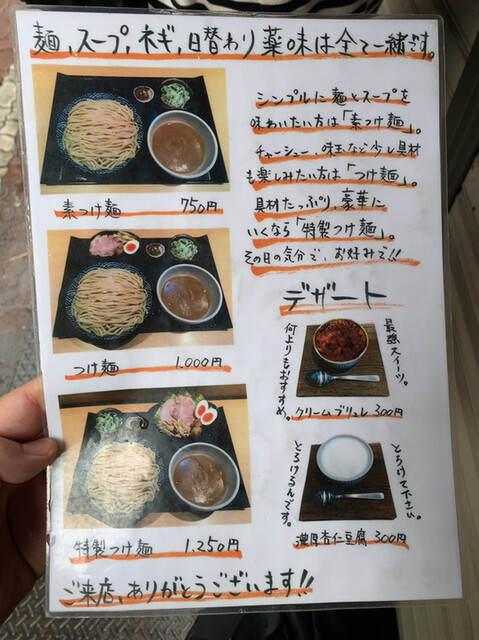 麺、スープ、ネギ、日替わり薬味は全て一緒です。
素つけ麺 750円
つけ麺 1.000円
特製つけ麺 1.250円
シンプルに麺とスープを
味わいたい方は「素つけ麺」。
チャーシュー、味玉など少し具材
も楽しみたい方は「つけ麺」。
具材たっぷり、豪華に
いくなら「特製つけ麺」。
その日の気分で、お好みで!!
デザート
最強スイーツ。
何よりもおすすめ。
クリームブリュレ 300円
とろけて下さい。
とろけるんです。
濃厚杏仁豆腐 300円
ご来店、ありがとうございます!!